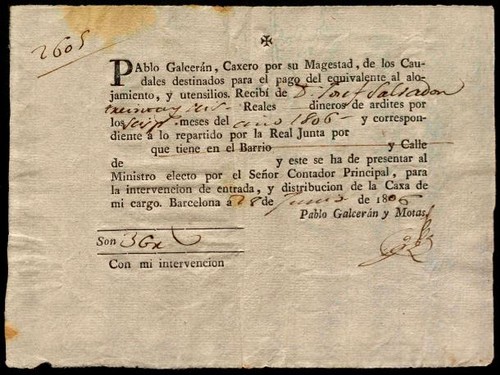 2605
PAblo Galcerán, Caxero por su Magestad, de los Cau-
dales destinados para el pago del equivalente al alo-
jamiento, y utensilios. Recibí de Dn. Josef Salvador
treinta y seis Reales dineros de ardites por
los meses del año 1806 y correspon-
diente á lo repartido por la Real Junta por
que tiene en el Barrio y Calle
de y este se ha de presentar al
Ministro electo por el Señor Contador Principal, para
la intervencion de entrada, y distribucion de la Caxa de
mi cargo. Barcelona á 28 de Junio de 1806
Pablo Galcerán y Motas.
Son 36
Con mi intervencion